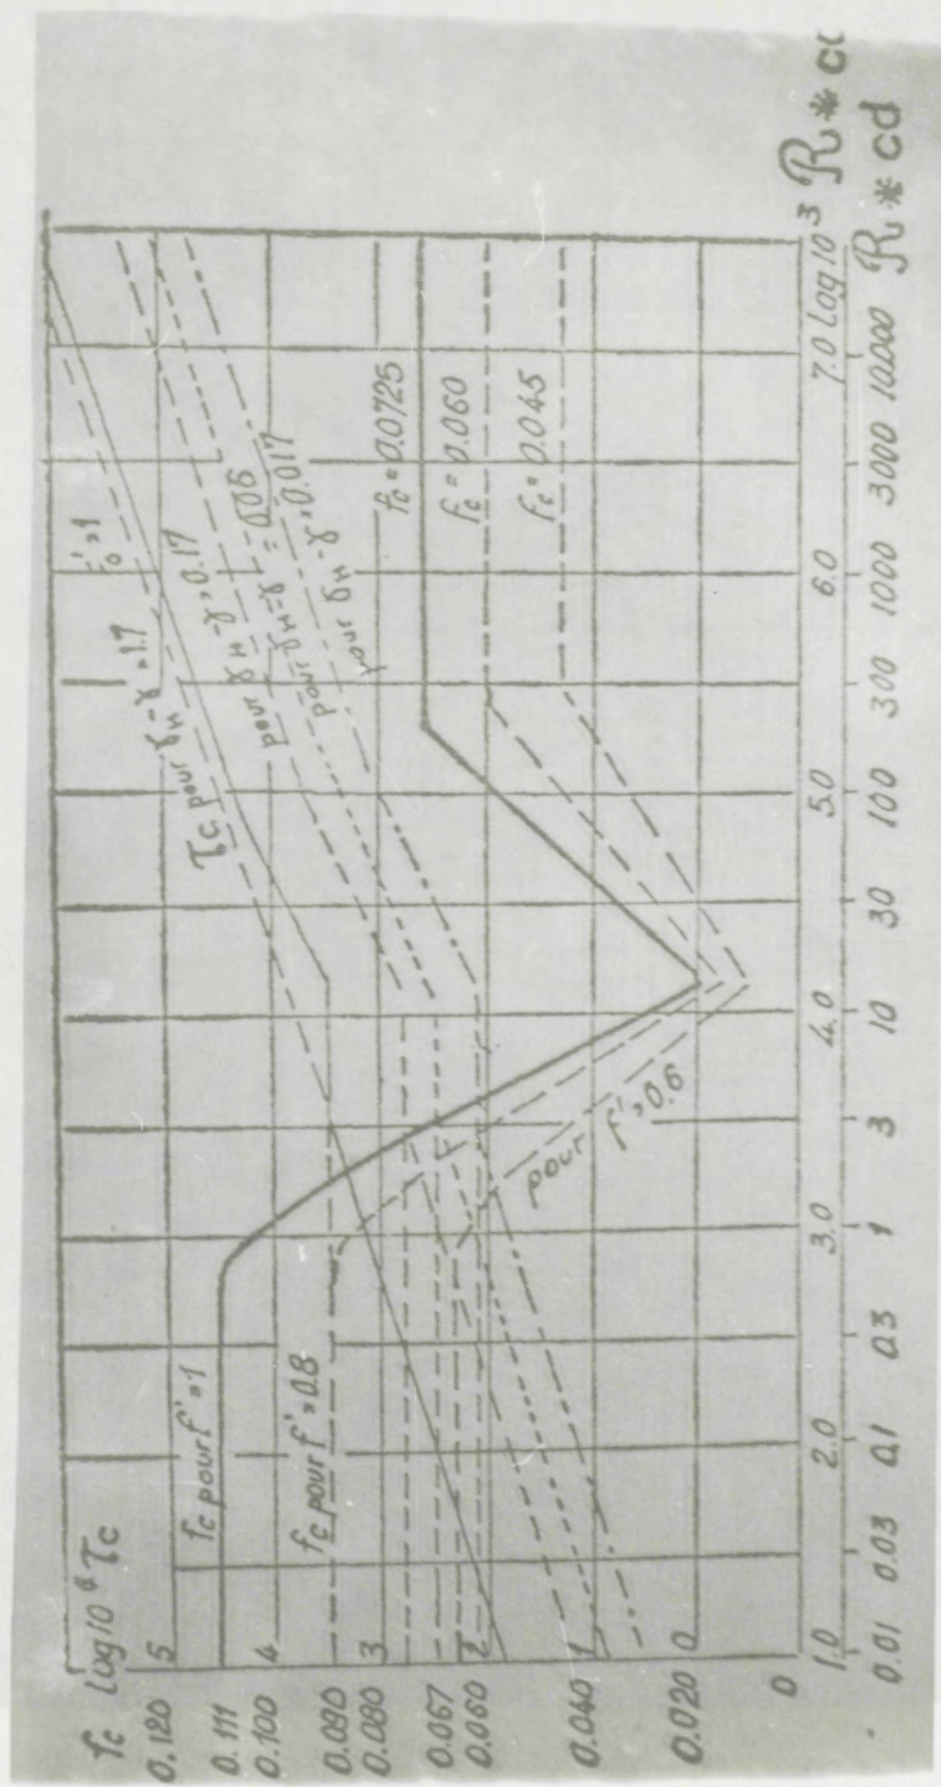 fc log 10⁶ τc
0.120 5
0.111
0.100 4
0.090
0.080 3
0.067
0.060 2
0.040 1
0.020 0
0
fc pour f' = 1
fc pour f' = 0.8
pour f' = 0.6
τc pour γH - γ = 1.7
f'o = 1
pour γH - γ = 0.17
pour γH - γ = 0.05
pour γH - γ = 0.017
fc = 0.0725
fc = 0.060
fc = 0.045
1.0 2.0 3.0 4.0 5.0 6.0 7.0 log 10³ R * cd
0.01 0.03 0.1 0.3 1 3 10 30 100 300 1000 3000 10.000 R * cd